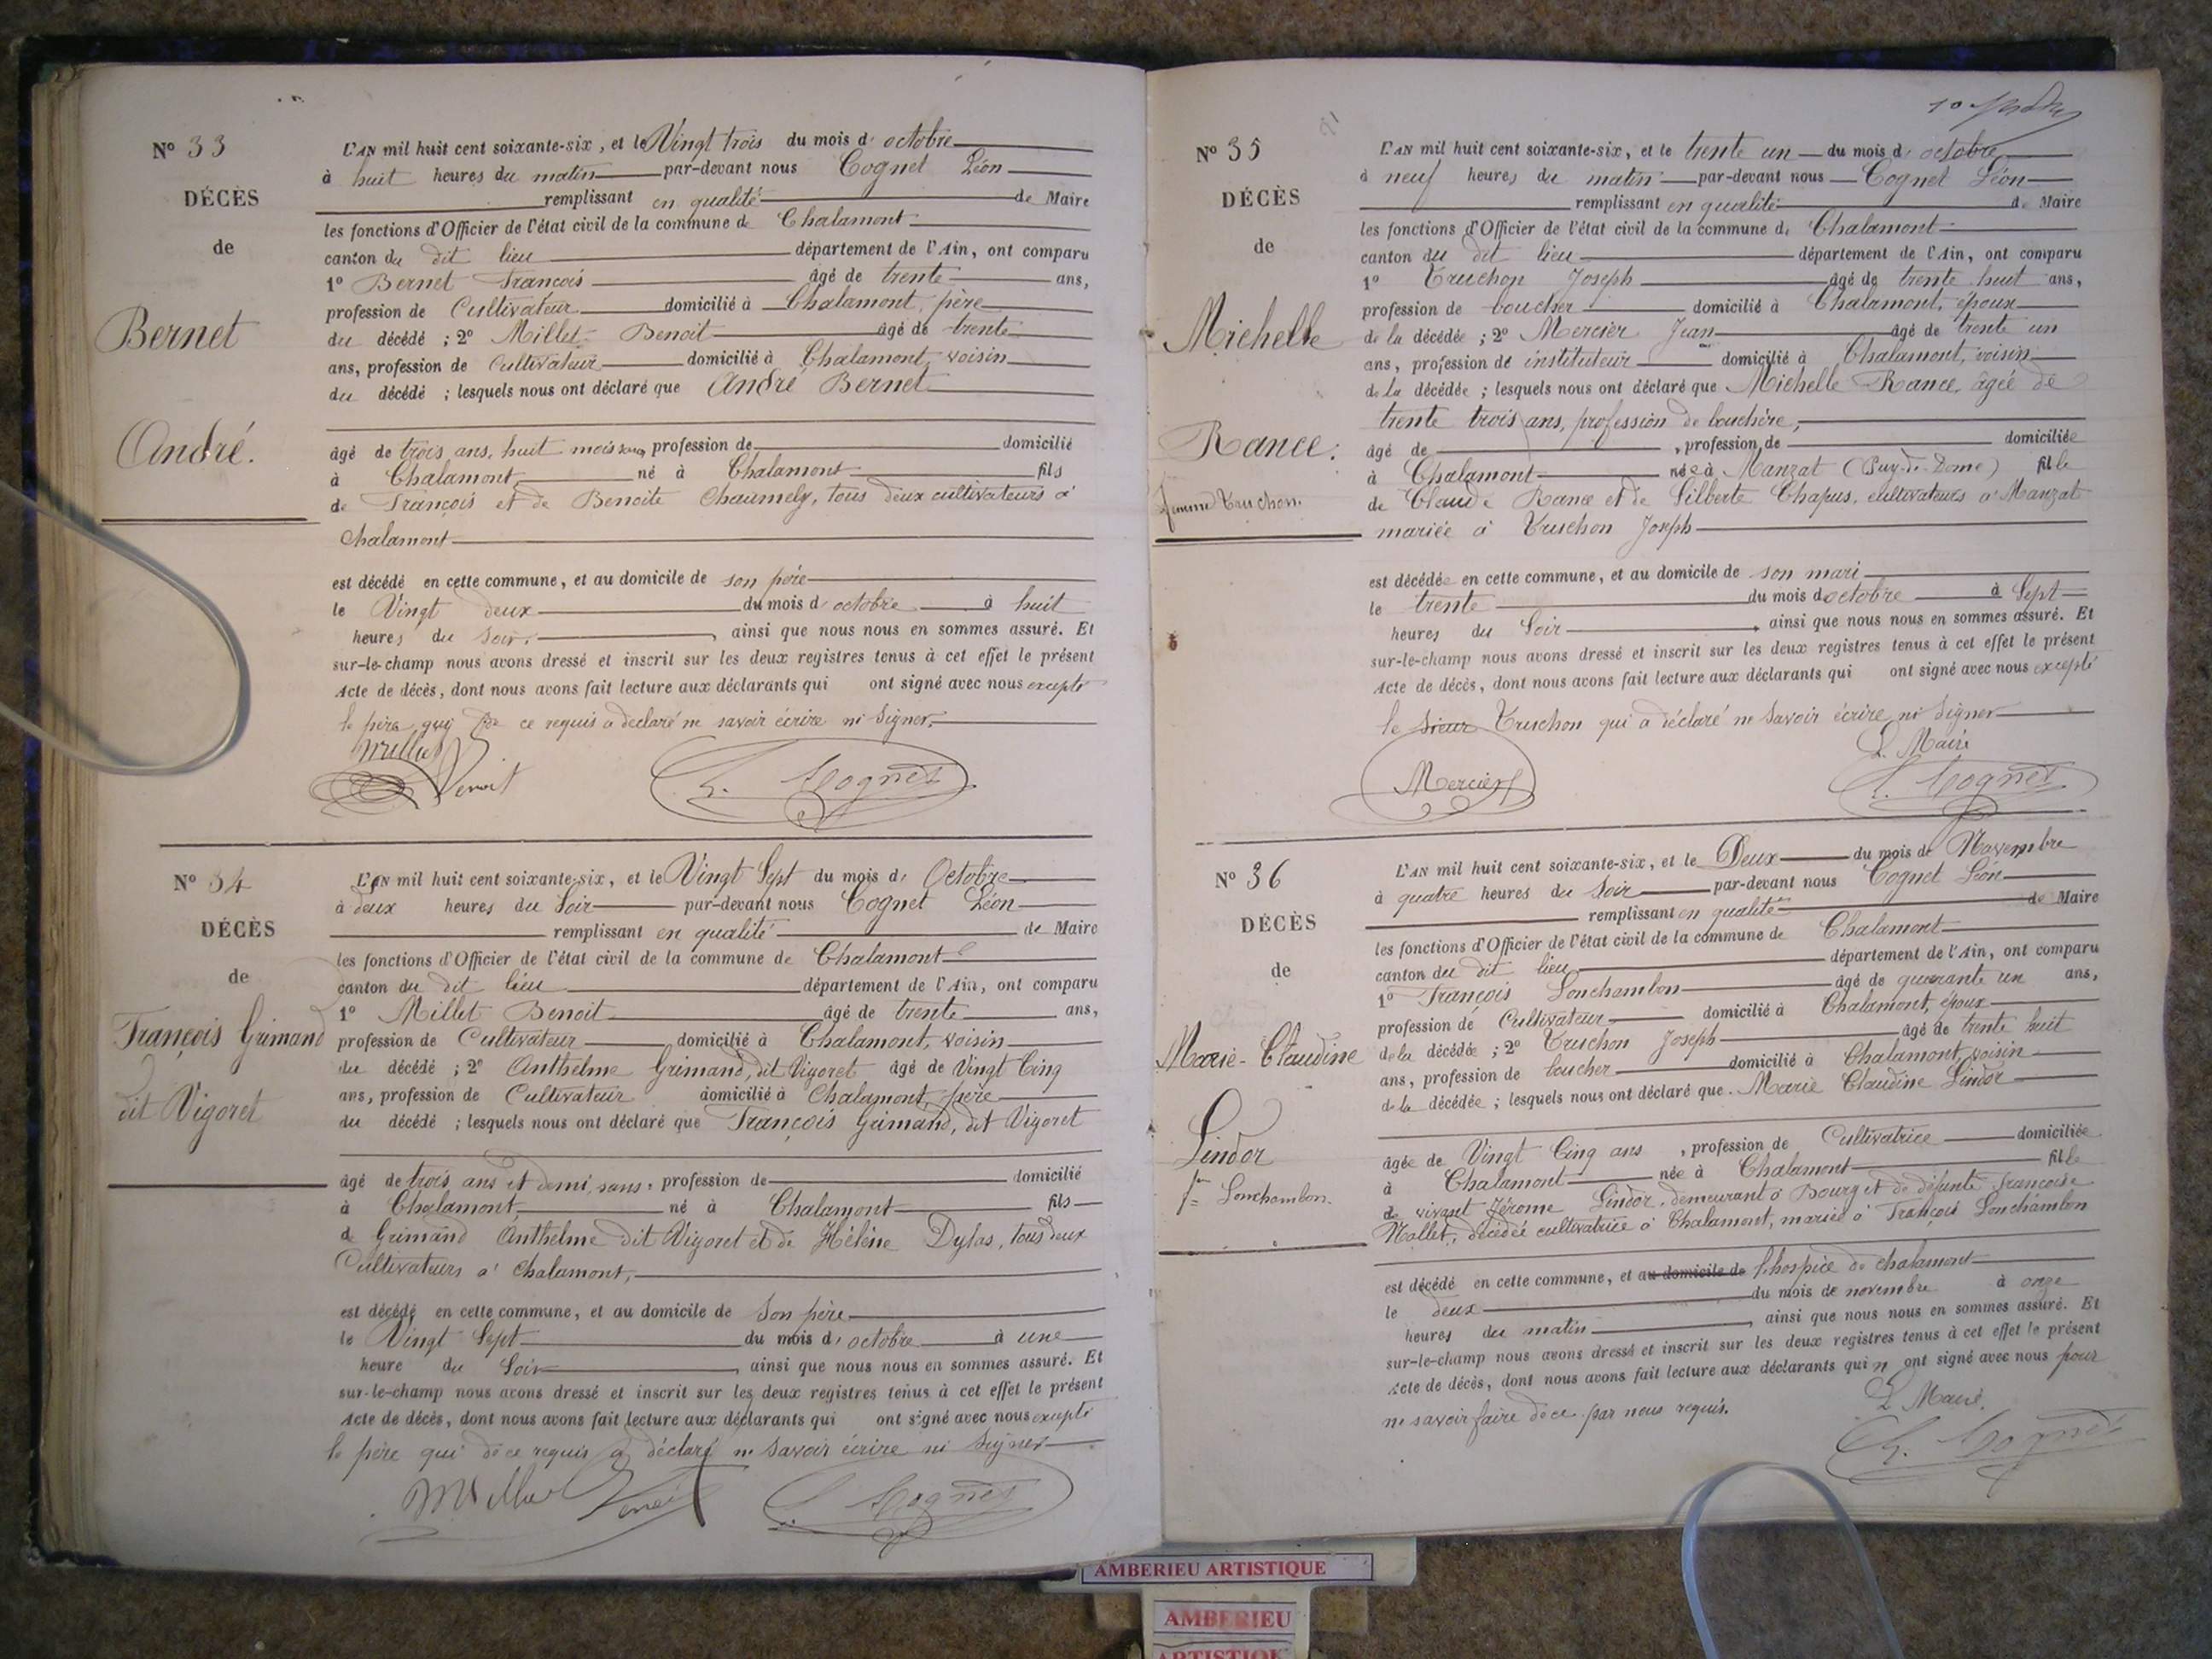 N° 33
DÉCÈS
de
Bernet
André.
L'AN mil huit cent soixante-six, et le Vingt trois du mois d'octobre
à huit heures du matin par-devant nous Cognet Léon
remplissant en qualité de Maire
les fonctions d'Officier de l'état civil de la commune de Chalamont
canton du dit lieu département de l'Ain, ont comparu
1° Bernet François âgé de trente ans,
profession de Cultivateur domicilié à Chalamont, père
du décédé ; 2° Millet Benoit âgé de trente
ans, profession de Cultivateur domicilié à Chalamont, voisin
du décédé ; lesquels nous ont déclaré que André Bernet
âgé de trois ans, huit mois sans profession de domicilié
à Chalamont né à Chalamont fils
de François et de Benoite Chaumely, tous deux cultivateurs à
Chalamont
est décédé en cette commune, et au domicile de son père
le Vingt deux du mois d'octobre à huit
heures du soir, ainsi que nous nous en sommes assuré. Et
sur-le-champ nous avons dressé et inscrit sur les deux registres tenus à cet effet le présent
Acte de décès, dont nous avons fait lecture aux déclarants qui ont signé avec nous excepté
le père qui de ce requis a déclaré ne savoir écrire ni signer,
Millet Benoit
L. Cognet
N° 34
DÉCÈS
de
François Grimand
dit Vigoret
L'AN mil huit cent soixante-six, et le Vingt Sept du mois d'Octobre
à deux heures du Soir par-devant nous Cognet Léon
remplissant en qualité de Maire
les fonctions d'Officier de l'état civil de la commune de Chalamont
canton du dit lieu département de l'Ain, ont comparu
1° Millet Benoit âgé de trente ans,
profession de Cultivateur domicilié à Chalamont, voisin
du décédé ; 2° Anthelme Grimand, dit Vigoret âgé de Vingt Cinq
ans, profession de Cultivateur domicilié à Chalamont, père
du décédé ; lesquels nous ont déclaré que François Grimand, dit Vigoret
âgé de trois ans et demi, sans, profession de domicilié
à Chalamont né à Chalamont fils
de Grimand Anthelme dit Vigoret et de Hélène Dylas, tous deux
Cultivateurs à Chalamont,
est décédé en cette commune, et au domicile de Son père
le Vingt Sept du mois d'octobre à une
heure du Soir, ainsi que nous nous en sommes assuré. Et
sur-le-champ nous avons dressé et inscrit sur les deux registres tenus à cet effet le présent
Acte de décès, dont nous avons fait lecture aux déclarants qui ont signé avec nous excepté
le père qui de ce requis a déclaré ne savoir écrire ni signer
Millet Benoit
L. Cognet
N° 35
DÉCÈS
de
Michelle
Rance.
femme Truchon.
L'AN mil huit cent soixante-six, et le trente un du mois d'octobre
à neuf heures du matin par-devant nous Cognet Léon
remplissant en qualité de Maire
les fonctions d'Officier de l'état civil de la commune de Chalamont
canton du dit lieu département de l'Ain, ont comparu
1° Truchon Joseph âgé de trente huit ans,
profession de boucher domicilié à Chalamont, époux
de la décédée ; 2° Mercier Jean âgé de trente un
ans, profession de instituteur domicilié à Chalamont, voisin
de la décédée ; lesquels nous ont déclaré que Michelle Rance, âgée de
trente trois ans, profession de bouchère,
âgé de , profession de domiciliée
à Chalamont née à Manzat (Puy-de-Dome) fille
de Claude Rance et de Gilberte Chapus, cultivateurs à Manzat
mariée à Truchon Joseph
est décédée en cette commune, et au domicile de son mari
le trente du mois d'octobre à Sept
heures du Soir, ainsi que nous nous en sommes assuré. Et
sur-le-champ nous avons dressé et inscrit sur les deux registres tenus à cet effet le présent
Acte de décès, dont nous avons fait lecture aux déclarants qui ont signé avec nous excepté
le sieur Truchon qui a déclaré ne savoir écrire ni signer
L. Maire
Mercier
L. Cognet
N° 36
DÉCÈS
de
Marie-Claudine
Lindor
fe Lonchambon.
L'AN mil huit cent soixante-six, et le Deux du mois de Novembre
à quatre heures du Soir par-devant nous Cognet Léon
remplissant en qualité de Maire
les fonctions d'Officier de l'état civil de la commune de Chalamont
canton du dit lieu département de l'Ain, ont comparu
1° François Lonchambon âgé de quarante un ans,
profession de Cultivateur domicilié à Chalamont, époux
de la décédée ; 2° Truchon Joseph âgé de trente huit
ans, profession de boucher domicilié à Chalamont, voisin
de la décédée ; lesquels nous ont déclaré que Marie Claudine Lindor
âgée de Vingt Cinq ans, profession de Cultivatrice domiciliée
à Chalamont née à Chalamont fille
de vivant Jérome Lindor, demeurant à Bourg et de défunte Françoise
Nallet, décédée cultivatrice à Chalamont, mariée à François Lonchambon
est décédé en cette commune, et au domicile de l'hospice de chalamont
le deux du mois de novembre à onze
heures du matin, ainsi que nous nous en sommes assuré. Et
sur-le-champ nous avons dressé et inscrit sur les deux registres tenus à cet effet le présent
Acte de décès, dont nous avons fait lecture aux déclarants qui n'ont signé avec nous pour
ne savoir faire de ce par nous requis.
L. Maire.
L. Cognet
AMBERIEU ARTISTIQUE
AMBERIEU
ARTISTIQUE